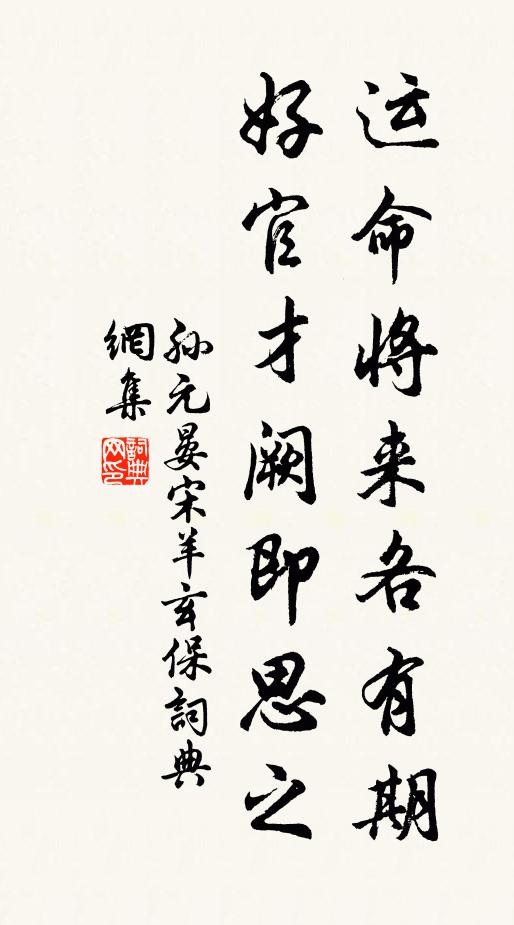 运命将来各有期
好官才阙即思之
孙元晏宋羊玄保詞典
網集
詞典
网印